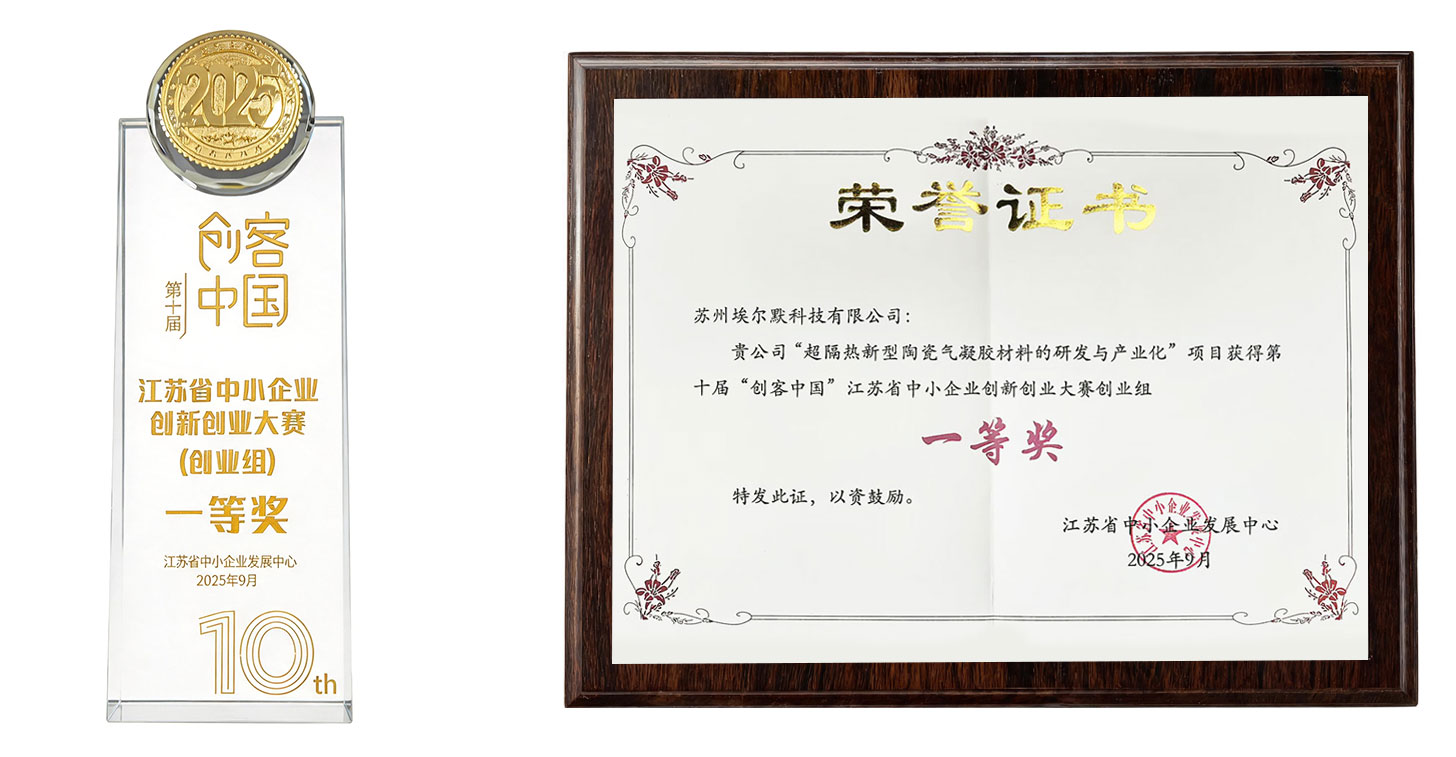 2025
创客
中国
第十届
江苏省中小企业
创新创业大赛
(创业组)
一等奖
江苏省中小企业发展中心
2025年9月
10th
荣誉证书
苏州埃尔默科技有限公司：
贵公司“超隔热新型陶瓷气凝胶材料的研发与产业化”项目获得第
十届“创客中国”江苏省中小企业创新创业大赛创业组
一等奖
特发此证，以资鼓励。
江苏省中小企业发展中心
2025年9月